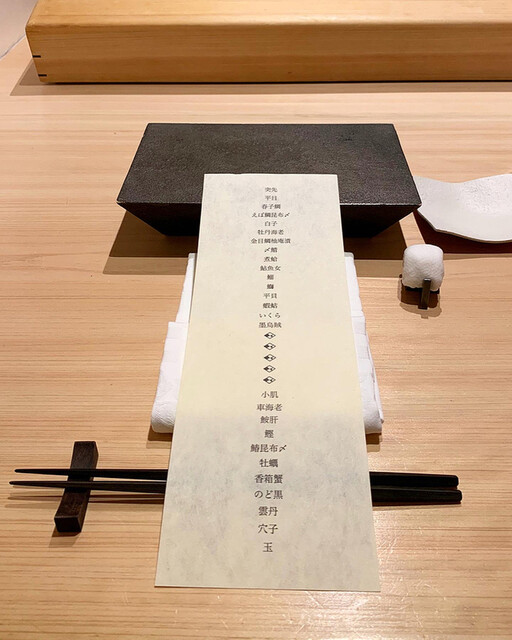 突先
平目
春子鯛
えぼ鯛昆布〆
白子
牡丹海老
金目鯛柚庵漬
〆鯖
煮蛤
鮎魚女
平貝
蝦蛄
いくら
墨烏賊
小肌
車海老
鮟肝
鰹
鰆昆布〆
牡蠣
香箱蟹
のど黒
雲丹
穴子
玉